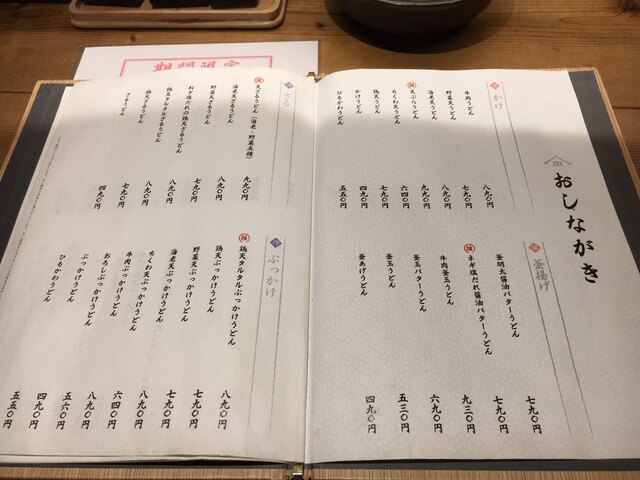 おしながき
かけ
牛肉うどん 八九〇円
野菜天うどん 七九〇円
海老天うどん 八九〇円
天ぷらうどん 九九〇円
ちくわ天うどん 六四〇円
鶏天うどん 七九〇円
かけうどん 四九〇円
ひもかわうどん 五五〇円
釜揚げ
釜明太醤油バターうどん 七九〇円
ネギ塩だれ醤油バターうどん 七九〇円
牛肉釜玉うどん 九三〇円
釜玉バターうどん 六九〇円
釜玉うどん 五三〇円
釜あげうどん 四九〇円
ざる
天ざるうどん(海老・野菜五種) 九九〇円
海老天ざるうどん 八九〇円
野菜天ざるうどん 七九〇円
ねぎ塩だれの鶏天ざるうどん 八九〇円
鶏天タルタルざるうどん 八九〇円
鶏天ざるうどん 七九〇円
ざるうどん 四九〇円
ぶっかけ
鶏天タルタルぶっかけうどん 八九〇円
鶏天ぶっかけうどん 七九〇円
野菜天ぶっかけうどん 七九〇円
海老天ぶっかけうどん 八九〇円
ちくわ天ぶっかけうどん 六四〇円
牛肉ぶっかけうどん 八九〇円
おろしぶっかけうどん 五六〇円
ぶっかけうどん 四九〇円
ひもかわうどん 五五〇円
期間限定